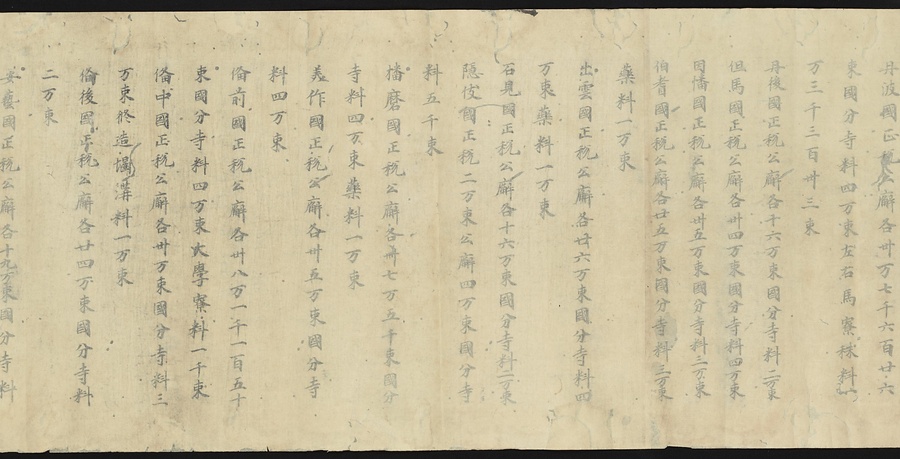 丹波國正税公廨各卅万七千六百廿六
東國分寺料四万東左右馬寮秣料
万三千三百卅三東
丹後國正税公廨各十六万東國分寺料二万東
但馬國正税公廨各卅四万東國分寺料四万東
因幡國正税公廨各卅五万東國分寺料三万東
伯耆國正税公廨各廿五万東國分寺料三万東
藥料一万東
出雲國正税公廨各廿六万東國分寺料四
万東藥料一万東
石見國正税公廨各十六万東國分寺料二万東
隠伎國正税二万東公廨四万東國分寺
料五千東
播磨國正税公廨各卌七万五千東國分
寺料四万東藥料一万東
美作國正税公廨各卅五万東國分寺
料四万東
俻前國正税公廨各卅八万一千一百五十
東國分寺料四万東大學寮料一千東
俻中國正税公廨各卅万東國分寺料三
万東修造溝料一万東
俻後國正税公廨各廿四万東國分寺料
二万東
安藝國正税公廨各十九万東國分寺料